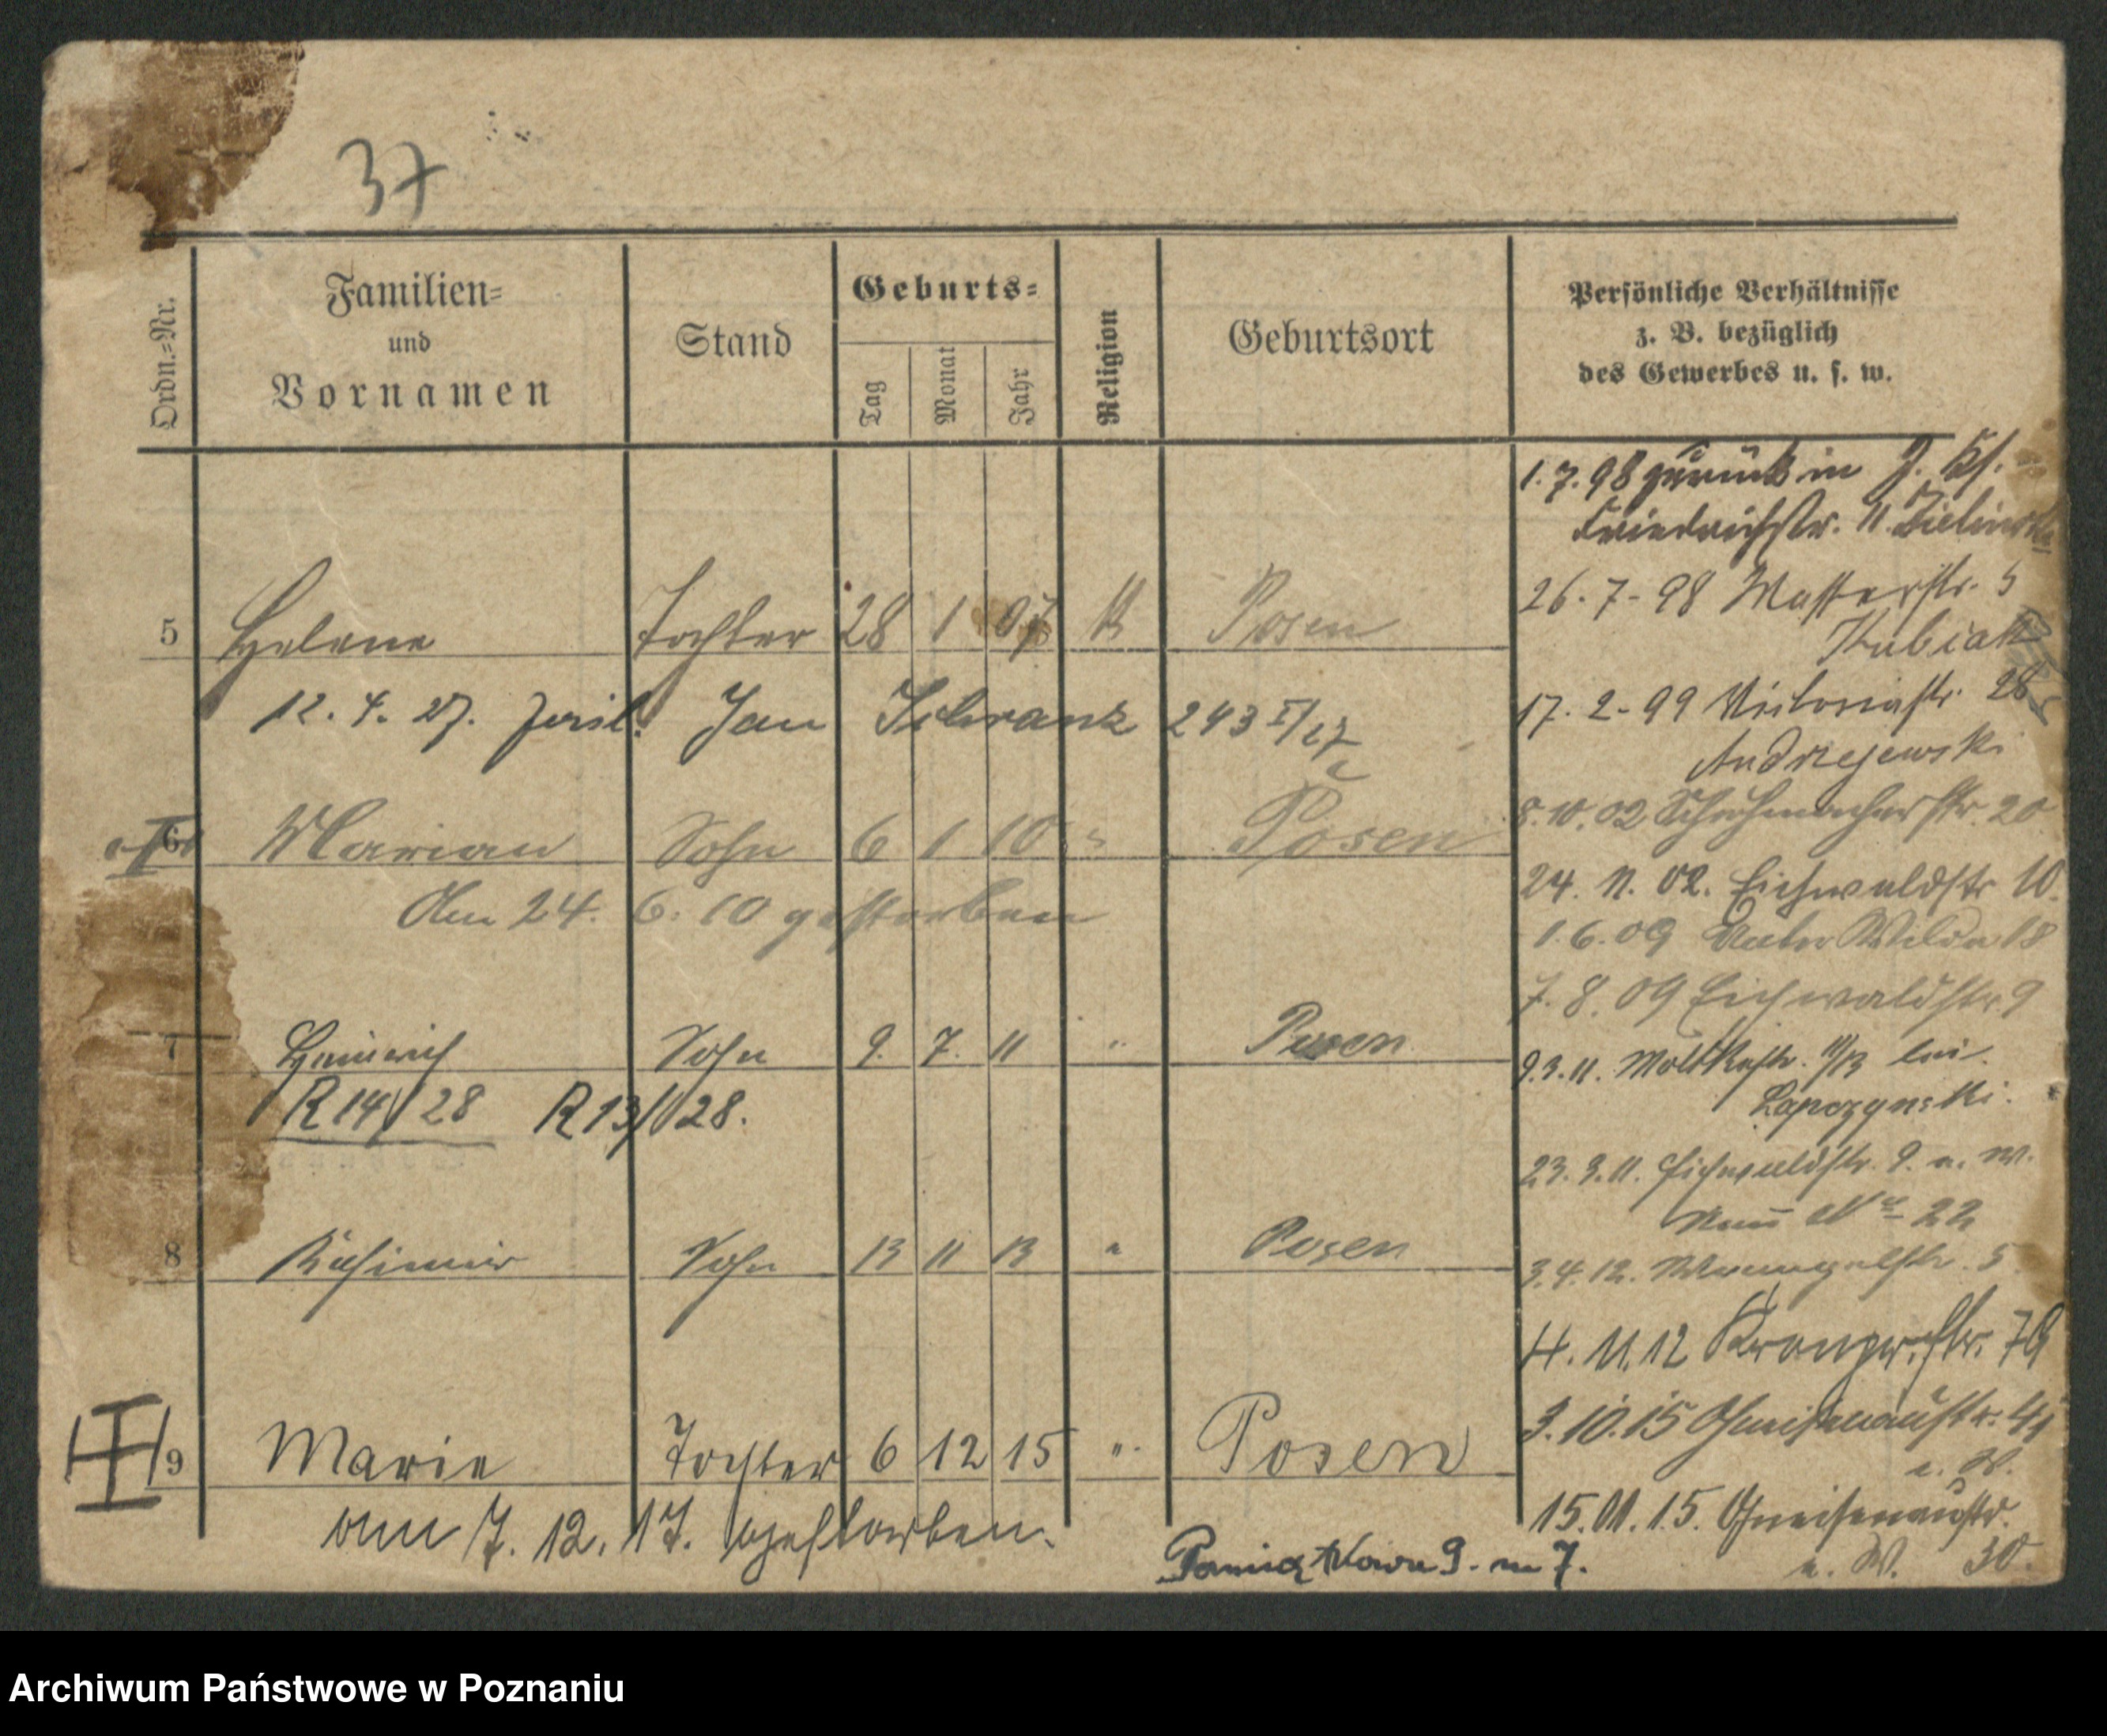 37
Ordn.=Nr.
Familien=
und
Vornamen
Stand
Geburts=
Tag
Monat
Jahr
Religion
Geburtsort
Persönliche Verhältnisse
z. B. bezüglich
des Gewerbes u. s. w.
1. 7. 98 zurück in
Friedrichstr. 11.
26. 7. 98 Wasserstr. 5
Kubiak
5 Helene Tochter 28 1 07 K Posen
12. 4. 27. Jan 243 I/27
17. 2. 99 Victoriastr. 28
Andrzejewski
6 Marian Sohn 6 1 10 " Posen
8. 10. 02 Schuhmacherstr. 20
Am 24. 6. 10 gestorben
24. 11. 02. Eichwaldstr 10.
1. 6. 09 Wilda 18
7. 8. 09 Eichwaldstr. 9
7 Heinrich Sohn 9. 7. 11 " Posen
9. 3. 11. Moltkestr. bei
Lapczynski.
R 14/28 R 13/28.
23. 3. 11. Eichwaldstr. 9. a. W.
22
8 Kasimir Sohn 13 11 13 " Posen
3. 4. 12. 5
4. 11. 12 Kronprz.str. 79
3. 10. 15 Gneisenaustr.
a. W.
9 Marie Tochter 6 12 15 " Posen
am 7. 12. 17. gestorben.
15. 01. 15. Gneisenaustr.
a. W. 30.
Pamiątkowa 9. m 7.
Archiwum Państwowe w Poznaniu